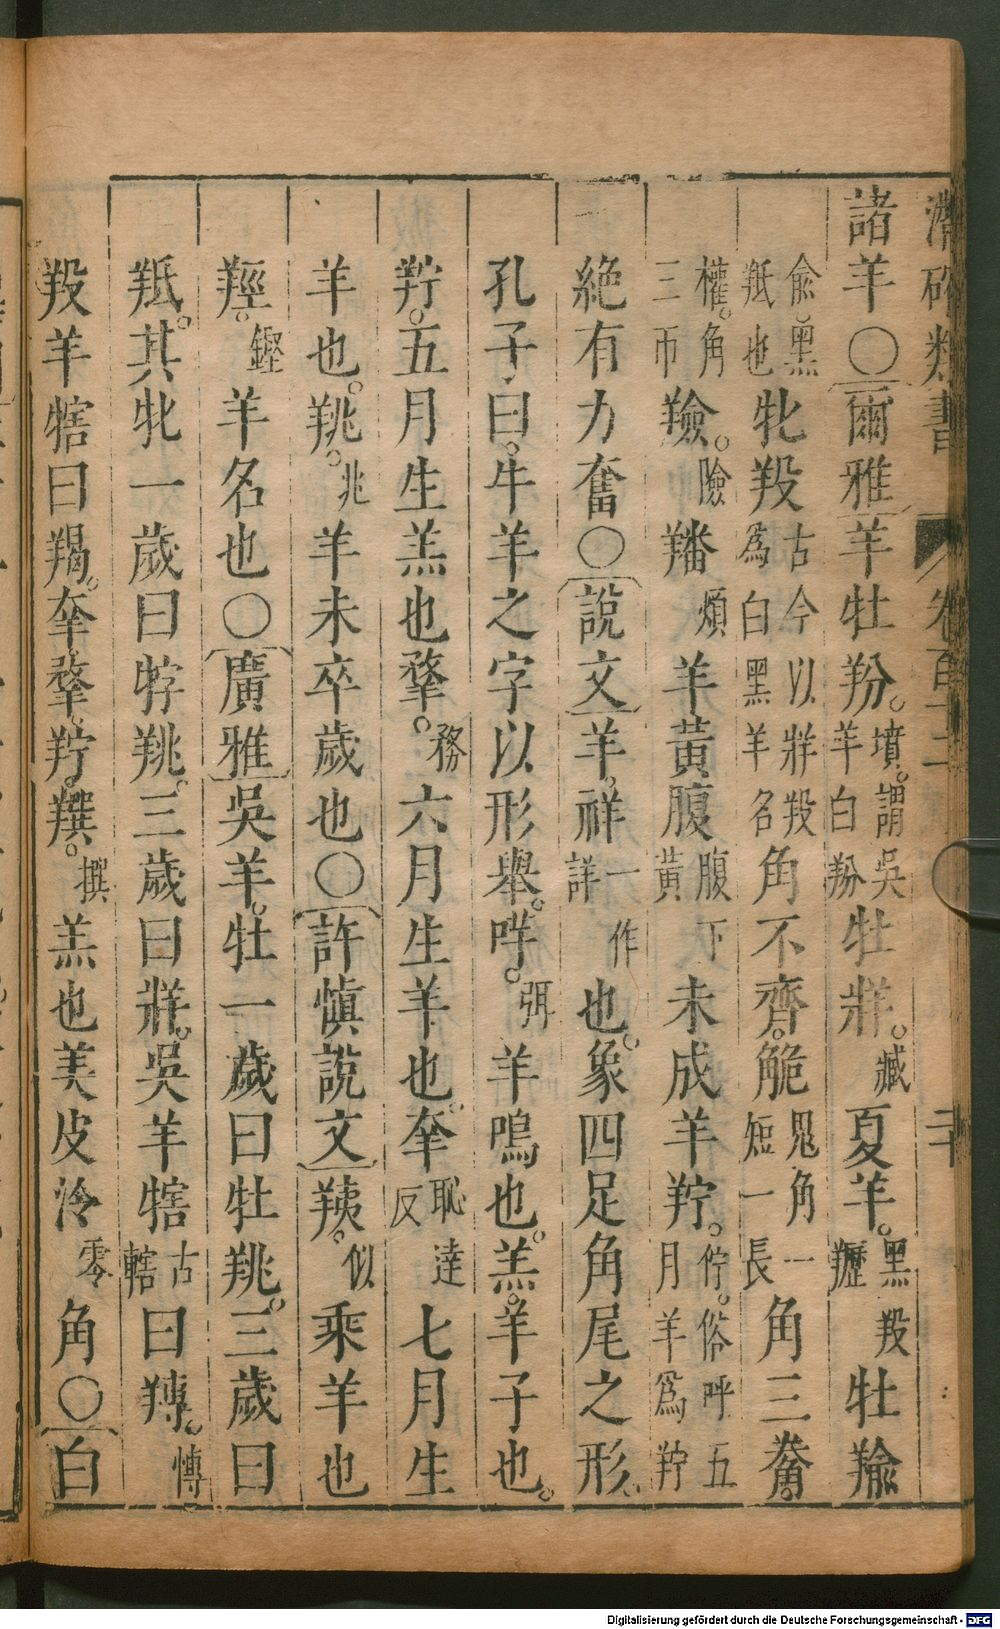 潛確類書 卷百十二
諸羊○爾雅羊牡羒。墳。謂吳羊白羒牡牂。臧夏羊。黑羖䍽牡羭
羭。黑羝也牝羖古今以牂羖為白黑羊名角不齊。觤鬼角一短一長角三觠。
權。角三帀羷。險羳煩羊黃腹腹下黃未成羊羜。佇。俗呼五月羊為羜
絕有力奮○說文羊。祥一作詳也。象四足角尾之形、
孔子曰。牛羊之字以形舉。咩。弭羊鳴也。羔。羊子也。
羜。五月生羔也䍮。務六月生羊也。羍恥達反七月生
羊也。羪。兆羊未卒歲也○許慎說文羠。似乘羊也
羥。鏗羊名也○廣雅吳羊。牡一歲曰牡羜。三歲曰
羝。其牝一歲曰牸羜。三歲曰牂。吳羊犗古轄曰䍶。慱
羖羊犗曰羯。羍。䍮。羜。䍻。撰羔也美皮泠零角○白
Digitalisierung gefördert durch die Deutsche Forschungsgemeinschaft - DFG